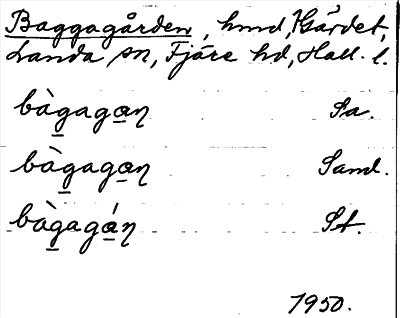 Baggagården, hmd, Gärdet,
Landa sn, Fjäre hd, Hall. l.
bàgagan̥ Sa.
bàgagan̥ Saml.
bàgagán̥ St.
1950.